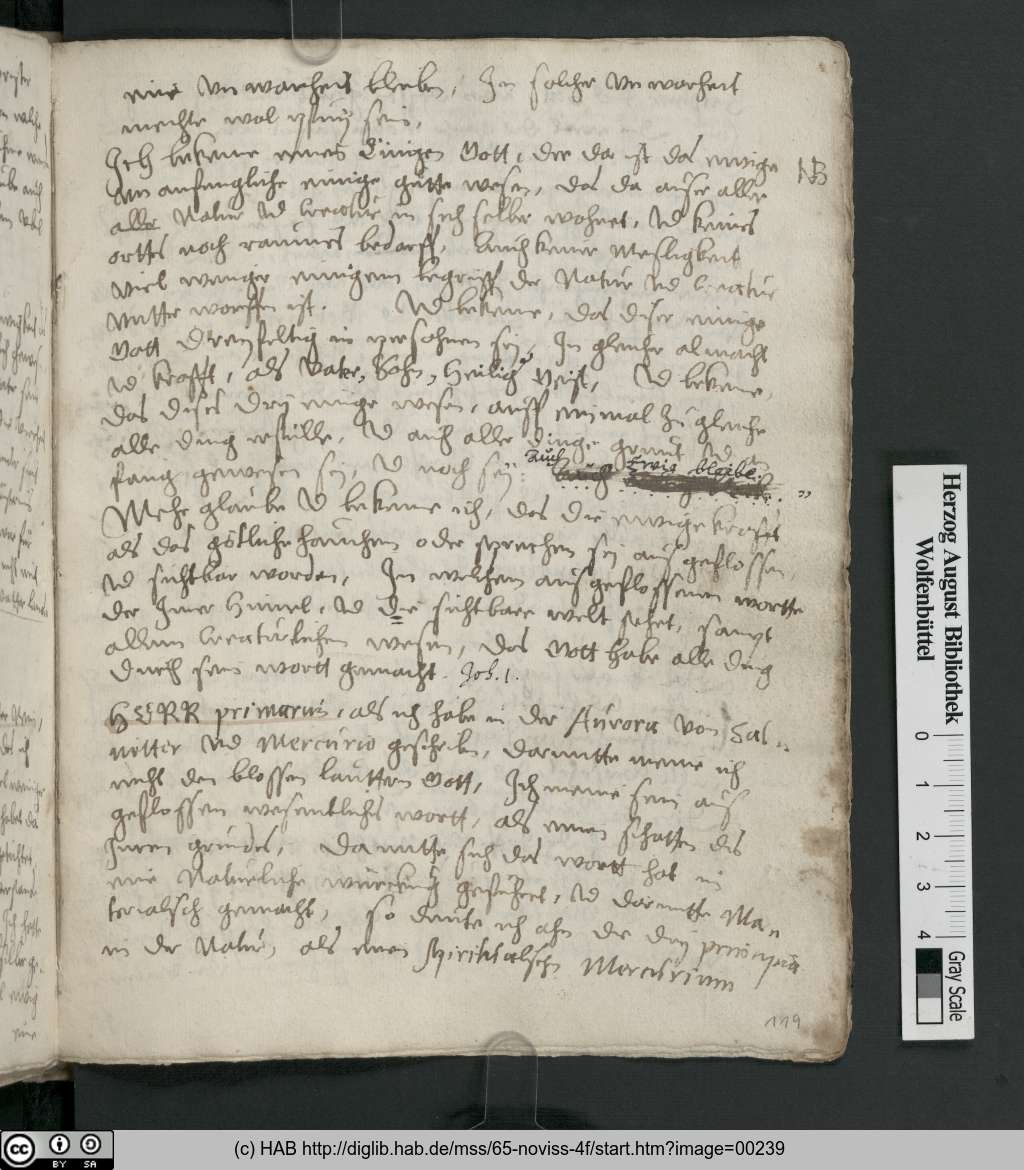 eine Vnwarheit bleiben, In solcher Vnwarheit
mechte wol sein,
Ich bekenne eines Einigen Gott, der da ist das ewige
NB
Vnanfengliche einige gutte wesen, das da auser aller
aller Natur vnd Creatur in sich selber wohnet, vnd keines
orttes noch raumes bedarff, Auch keiner Mesligkeit
viel weniger einigem begrieff der Natur vnd Creatur
vntter worffen ist. Vnd bekenne, das diser einige
Gott Dreyfeltig in personen sey, In gleicher almacht
vnd krafft, als Vater, Sohn, Heiliger Geist, Vnd bekenne,
das dises Drey einige wesen, auff einmal zu gleiche
alle ding erfülle, vnd auch aller dinge grund vnd an
fang gewesen sey, vnd noch sey: Auch Ewig bleibe.
Mehr glaube vnd bekenne ich, das die ewige krafft
als das götliche hauchen oder sprechen sey ausgeflossen,
vnd sichtbar worden, In welchem ausgeflossenen wortte
der Iner Himel, vnd die sichtbare welt stehet, sampt
allem Creatürlichen wesen, das Gott habe alle ding
durch sein wortt gemacht. Joh. 1.
HERR primarius, als ich habe in der Aurora von Sal=
nitter vnd Mercurio geschriben, darmitte meine ich
nicht den blossen lauttern Gott, Ich meine sein aus
geflossen wesentliches wortt, als einen schatten des
Inren grundes, Damitte sich das wortt hat in
eine Natürliche würckung geführet, vnd darmitte Ma=
terialisch gemacht, so deute ich ahn die drey principia
in der Natur, als einen Spiritualischen Mercurium
119
Herzog August Bibliothek
Wolfenbüttel
0 1 2 3 4
Gray Scale
cc BY SA
(c) HAB http://diglib.hab.de/mss/65-noviss-4f/start.htm?image=00239